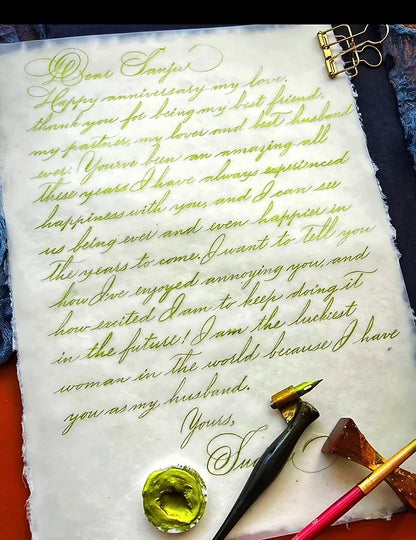 Dear Sanju
Happy anniversary my love.
thank you for being my best friend,
my partner, my lover and best husband
ever! You've been an amazing all
these years I have always experienced
happiness with you, and I can see
us being ever and even happier in
the years to come. I want to tell you
how I've enjoyed annoying you, and
how excited I am to keep doing it
in the future! I am the luckiest
woman in the world because I have
you as my husband.
Yours,